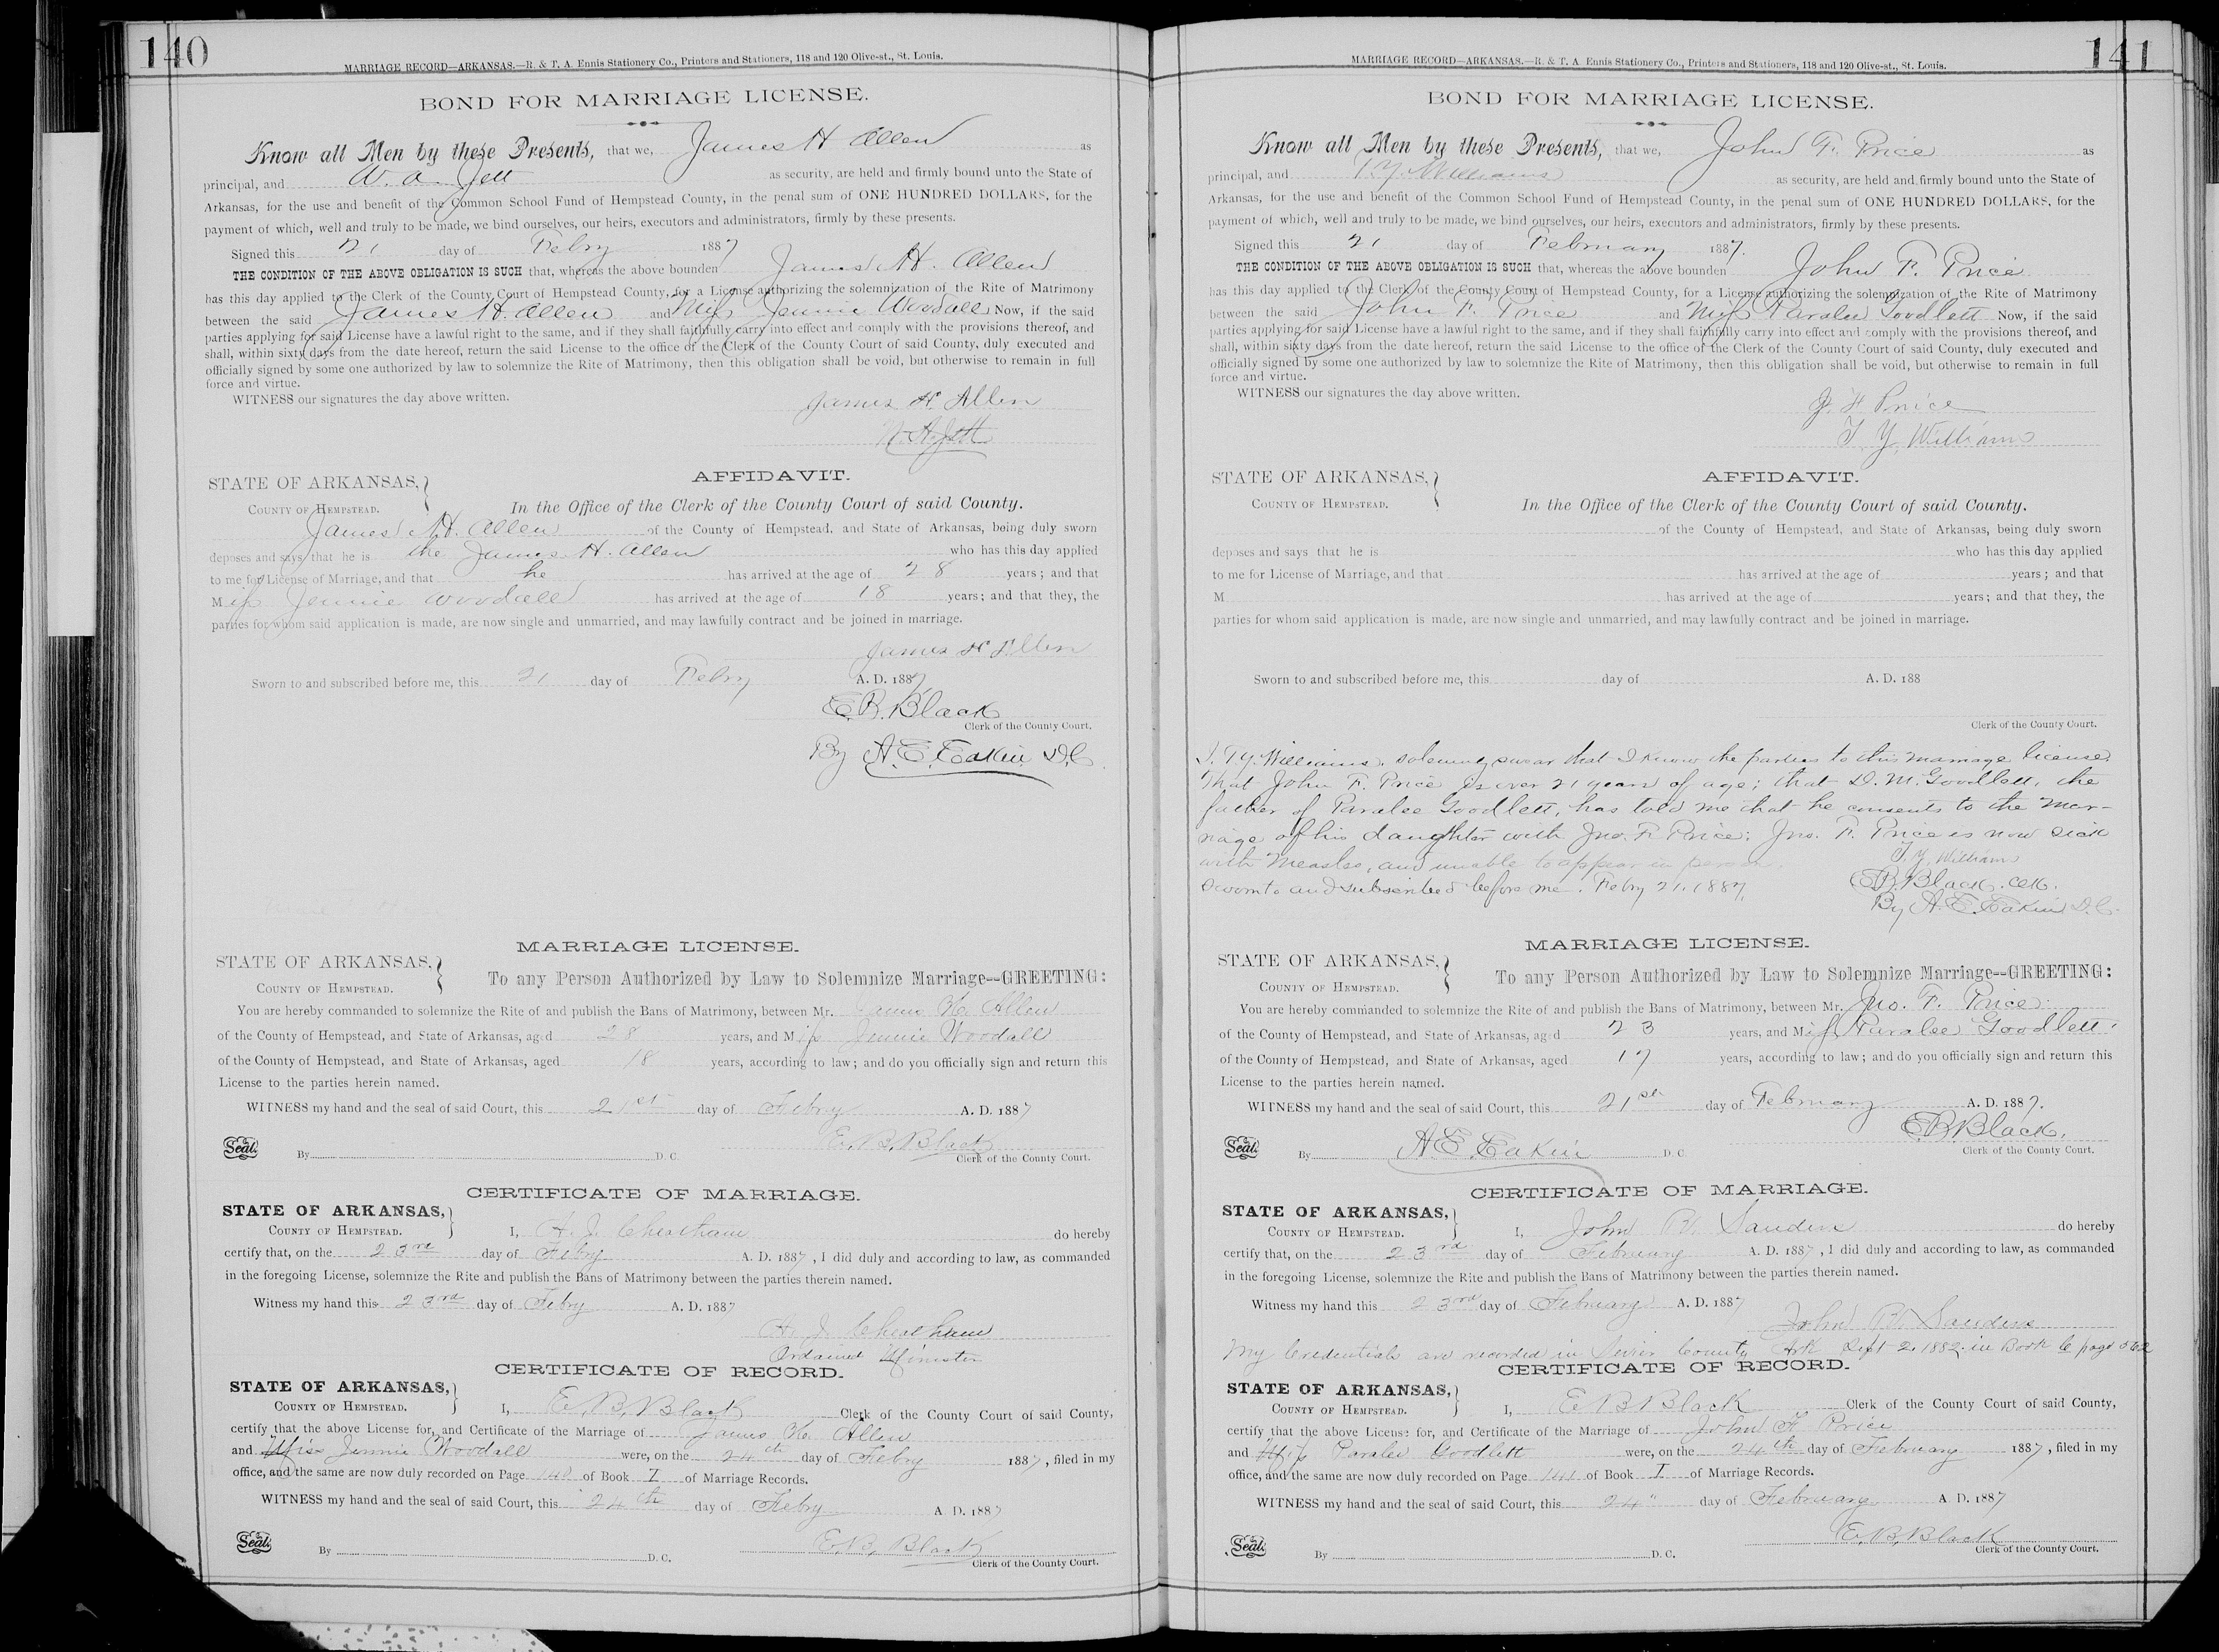 140
MARRIAGE RECORD—ARKANSAS.—R. & T. A. Ennis Stationery Co., Printers and Stationers, 118 and 120 Olive-st., St. Louis.
BOND FOR MARRIAGE LICENSE.
Know all Men by these Presents, that we, James H Allen as
principal, and W. A. Jett as security, are held and firmly bound unto the State of
Arkansas, for the use and benefit of the Common School Fund of Hempstead County, in the penal sum of ONE HUNDRED DOLLARS, for the
payment of which, well and truly to be made, we bind ourselves, our heirs, executors and administrators, firmly by these presents.
Signed this 21 day of Febry 1887
THE CONDITION OF THE ABOVE OBLIGATION IS SUCH that, whereas the above bounden James H. Allen
has this day applied to the Clerk of the County Court of Hempstead County, for a License authorizing the solemnization of the Rite of Matrimony
between the said James H. Allen and Miss Jennie Woodall Now, if the said
parties applying for said License have a lawful right to the same, and if they shall faithfully carry into effect and comply with the provisions thereof, and
shall, within sixty days from the date hereof, return the said License to the office of the Clerk of the County Court of said County, duly executed and
officially signed by some one authorized by law to solemnize the Rite of Matrimony, then this obligation shall be void, but otherwise to remain in full
force and virtue.
WITNESS our signatures the day above written.
James H Allen
W. A. Jett
AFFIDAVIT.
STATE OF ARKANSAS,
COUNTY OF HEMPSTEAD.
In the Office of the Clerk of the County Court of said County.
James H. Allen of the County of Hempstead, and State of Arkansas, being duly sworn
deposes and says that he is the James H. Allen who has this day applied
to me for License of Marriage, and that he has arrived at the age of 28 years; and that
Miss Jennie Woodall has arrived at the age of 18 years; and that they, the
parties for whom said application is made, are now single and unmarried, and may lawfully contract and be joined in marriage.
James H Allen
Sworn to and subscribed before me, this 21 day of Febry A. D. 1887
E. B. Black
Clerk of the County Court.
By A. E. Eakin D.C.
MARRIAGE LICENSE.
STATE OF ARKANSAS,
COUNTY OF HEMPSTEAD.
To any Person Authorized by Law to Solemnize Marriage--GREETING:
You are hereby commanded to solemnize the Rite of and publish the Bans of Matrimony, between Mr. James H. Allen
of the County of Hempstead, and State of Arkansas, aged 28 years, and Miss Jennie Woodall
of the County of Hempstead, and State of Arkansas, aged 18 years, according to law; and do you officially sign and return this
License to the parties herein named.
WITNESS my hand and the seal of said Court, this 21st day of Febry A. D. 1887
E. B. Black
Seal. By D. C. Clerk of the County Court.
CERTIFICATE OF MARRIAGE.
STATE OF ARKANSAS,
COUNTY OF HEMPSTEAD. I, H. J. Cheatham do hereby
certify that, on the 23rd day of Febry A. D. 1887, I did duly and according to law, as commanded
in the foregoing License, solemnize the Rite and publish the Bans of Matrimony between the parties therein named.
Witness my hand this 23rd day of Febry A. D. 1887
H. J. Cheatham
Ordained Minister
CERTIFICATE OF RECORD.
STATE OF ARKANSAS,
COUNTY OF HEMPSTEAD. I, E. B. Black Clerk of the County Court of said County,
certify that the above License for, and Certificate of the Marriage of James H. Allen
and Miss Jennie Woodall were, on the 24th day of Febry 1887, filed in my
office, and the same are now duly recorded on Page 140 of Book I of Marriage Records.
WITNESS my hand and the seal of said Court, this 24th day of Febry A. D. 1887
E. B. Black
Seal. By D. C. Clerk of the County Court.
141
MARRIAGE RECORD—ARKANSAS.—R. & T. A. Ennis Stationery Co., Printers and Stationers, 118 and 120 Olive-st., St. Louis.
BOND FOR MARRIAGE LICENSE.
Know all Men by these Presents, that we, John F. Price as
principal, and T. Y. Williams as security, are held and firmly bound unto the State of
Arkansas, for the use and benefit of the Common School Fund of Hempstead County, in the penal sum of ONE HUNDRED DOLLARS, for the
payment of which, well and truly to be made, we bind ourselves, our heirs, executors and administrators, firmly by these presents.
Signed this 21 day of February 1887.
THE CONDITION OF THE ABOVE OBLIGATION IS SUCH that, whereas the above bounden John F. Price
has this day applied to the Clerk of the County Court of Hempstead County, for a License authorizing the solemnization of the Rite of Matrimony
between the said John F. Price and Miss Paralee Goodlett Now, if the said
parties applying for said License have a lawful right to the same, and if they shall faithfully carry into effect and comply with the provisions thereof, and
shall, within sixty days from the date hereof, return the said License to the office of the Clerk of the County Court of said County, duly executed and
officially signed by some one authorized by law to solemnize the Rite of Matrimony, then this obligation shall be void, but otherwise to remain in full
force and virtue.
WITNESS our signatures the day above written.
J. F Price
T Y Williams
AFFIDAVIT.
STATE OF ARKANSAS,
COUNTY OF HEMPSTEAD.
In the Office of the Clerk of the County Court of said County.
of the County of Hempstead, and State of Arkansas, being duly sworn
deposes and says that he is who has this day applied
to me for License of Marriage, and that has arrived at the age of years; and that
M has arrived at the age of years; and that they, the
parties for whom said application is made, are now single and unmarried, and may lawfully contract and be joined in marriage.
Sworn to and subscribed before me, this day of A. D. 188
Clerk of the County Court.
I. T. Y. Williams, solemnly swear that I know the parties to this marriage license,
That John F. Price is over 21 years of age; that D. M. Goodlett, the
father of Paralee Goodlett, has told me that he consents to the mar-
riage of his daughter with Jno. F. Price; Jno. F. Price is now sick
with Measles, and unable to appear in person.
T. Y. Williams
Sworn to and subscribed before me. Febry 21. 1887.
E. B. Black. Clk.
By A. E. Eakin D.C.
MARRIAGE LICENSE.
STATE OF ARKANSAS,
COUNTY OF HEMPSTEAD.
To any Person Authorized by Law to Solemnize Marriage--GREETING:
You are hereby commanded to solemnize the Rite of and publish the Bans of Matrimony, between Mr. Jno. F. Price
of the County of Hempstead, and State of Arkansas, aged 23 years, and Miss Paralee Goodlett
of the County of Hempstead, and State of Arkansas, aged 17 years, according to law; and do you officially sign and return this
License to the parties herein named.
WITNESS my hand and the seal of said Court, this 21st day of February A. D. 1887.
E. B. Black.
Seal. By A. E. Eakin D. C. Clerk of the County Court.
CERTIFICATE OF MARRIAGE.
STATE OF ARKANSAS,
COUNTY OF HEMPSTEAD. I, John B. Sanders do hereby
certify that, on the 23rd day of February A. D. 1887, I did duly and according to law, as commanded
in the foregoing License, solemnize the Rite and publish the Bans of Matrimony between the parties therein named.
Witness my hand this 23rd day of February A. D. 1887
John B. Sanders
My Credentials are recorded in Sevier County Ark Sept 2. 1882. in Book C page
CERTIFICATE OF RECORD.
STATE OF ARKANSAS,
COUNTY OF HEMPSTEAD. I, E B Black Clerk of the County Court of said County,
certify that the above License for, and Certificate of the Marriage of John F Price
and Miss Paralee Goodlett were, on the 24th day of February 1887, filed in my
office, and the same are now duly recorded on Page 141 of Book I of Marriage Records.
WITNESS my hand and the seal of said Court, this 24" day of February A. D. 1887
E. B. Black
Seal. By D. C. Clerk of the County Court.